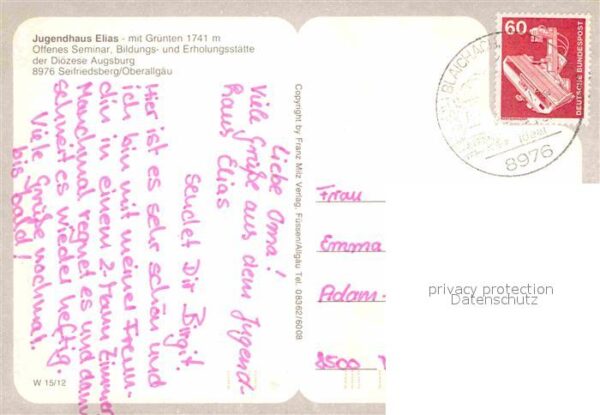 Jugendhaus Elias - mit Grünten 1741 m
Offenes Seminar, Bildungs- und Erholungsstätte
der Diözese Augsburg
8976 Seifriedsberg/Oberallgäu
Liebe Oma!
Viele Grüße aus dem Jugend-
haus Elias
sendet Dir Birgit!
Hier ist es sehr schön und
ich bin mit meiner Freun-
din in einem 2-Mann Zimmer
Manchmal regnet es und dann
schneit es wieder heftig.
Viele Grüße nochmal.
bis bald!
W 15/12
Copyright by Franz Milz Verlag, Füssen/Allgäu Tel. 08362/6008
60
DEUTSCHE BUNDESPOST
BLAICHACH
8976
Frau
Emma
Adam-
8500
privacy protection
Datenschutz